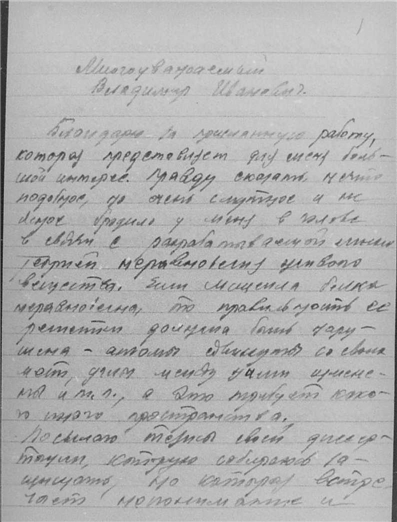 1
Многоуважаемый
Владимир Иванович.
Благодарю за присланную работу,
которая представляет для меня боль-
шой интерес. Правду сказать нечто
подобное, но очень смутное и не
ясное бродило у меня в голове
в связи с разрабатываемой мною
теорией неравновесия живого
вещества. Если молекула белка
неравновесна, то правильность ее
решетки должна быть нару-
шена - атомы сдвинуты со своих
мест, углы между ними измене-
ны и т.п., а это требует како-
го иного пространства.
Посылаю тезисы своей диссер-
тации, которую собираюсь за-
щищать, но которая встре-
чает непонимание и